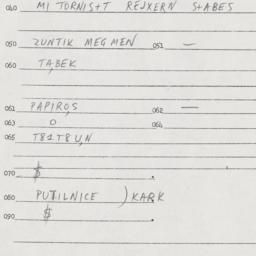 040 MI TORNIS+T REJXERN S+ABES
050 ZUNTIK MEGMEN 051 —
060 TA,BEK
061 PAPIRO,S 062 —
063 O 064
065 T81T8U,N
070 $ .
080 PUTILNICE ) KARK
090 $ .